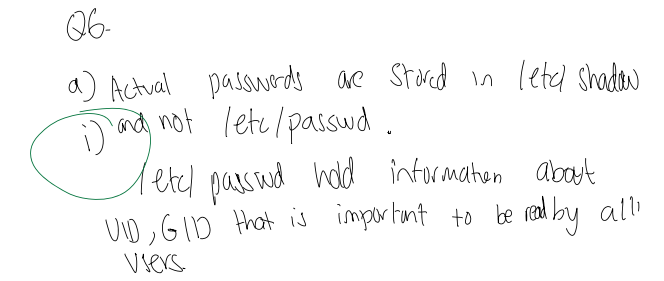 Q6-
a) Actual passwords are stored in /etc/ shadow
i) and not /etc/passwd .
/etc/ passwd hold information about
UID, GID that is important to be read by all
users.